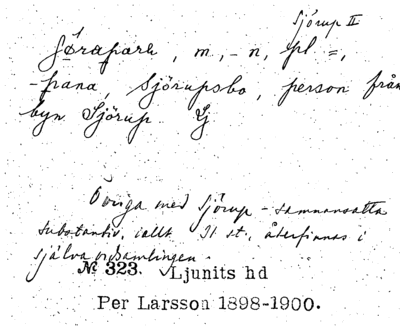 Sjörup II
Sjørapara, m, -n, pl =,
-parna, Sjörupsbo, person från
byn Sjörup Lj
Övriga med Sjörup - sammansatta
substantiv, inallt 31 st., återfinnas i
själva ordsamlingen.
№ 323. Ljunits hd
Per Larsson 1898-1900.